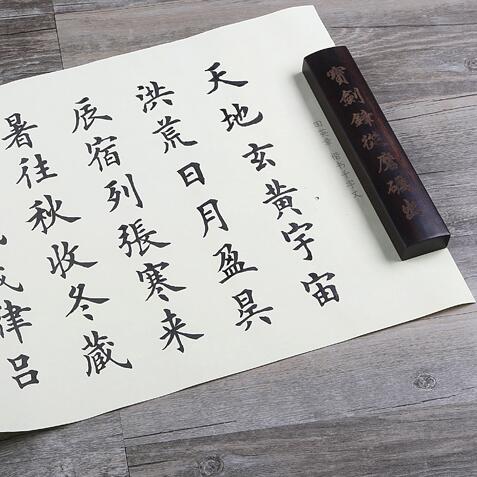 寶劍鋒從磨礪出
田英章 楷书千字文
天地玄黃宇宙
洪荒日月盈昃
辰宿列張寒来
暑往秋收冬藏
律吕